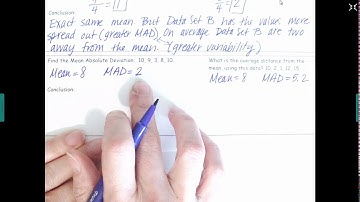 Conclusion:
Exact same mean But Data Set B has the value more
spread out (greater MAD). On average Data Set B are two
away from the mean. (greater variability)
Find the Mean Absolute Deviation: 10, 9, 3, 8, 10
What is the average distance from the
mean, using this data? 10, 2, 1, 12, 15
Mean = 8 MAD = 2
Mean = 8 MAD = 5.2
Conclusion: